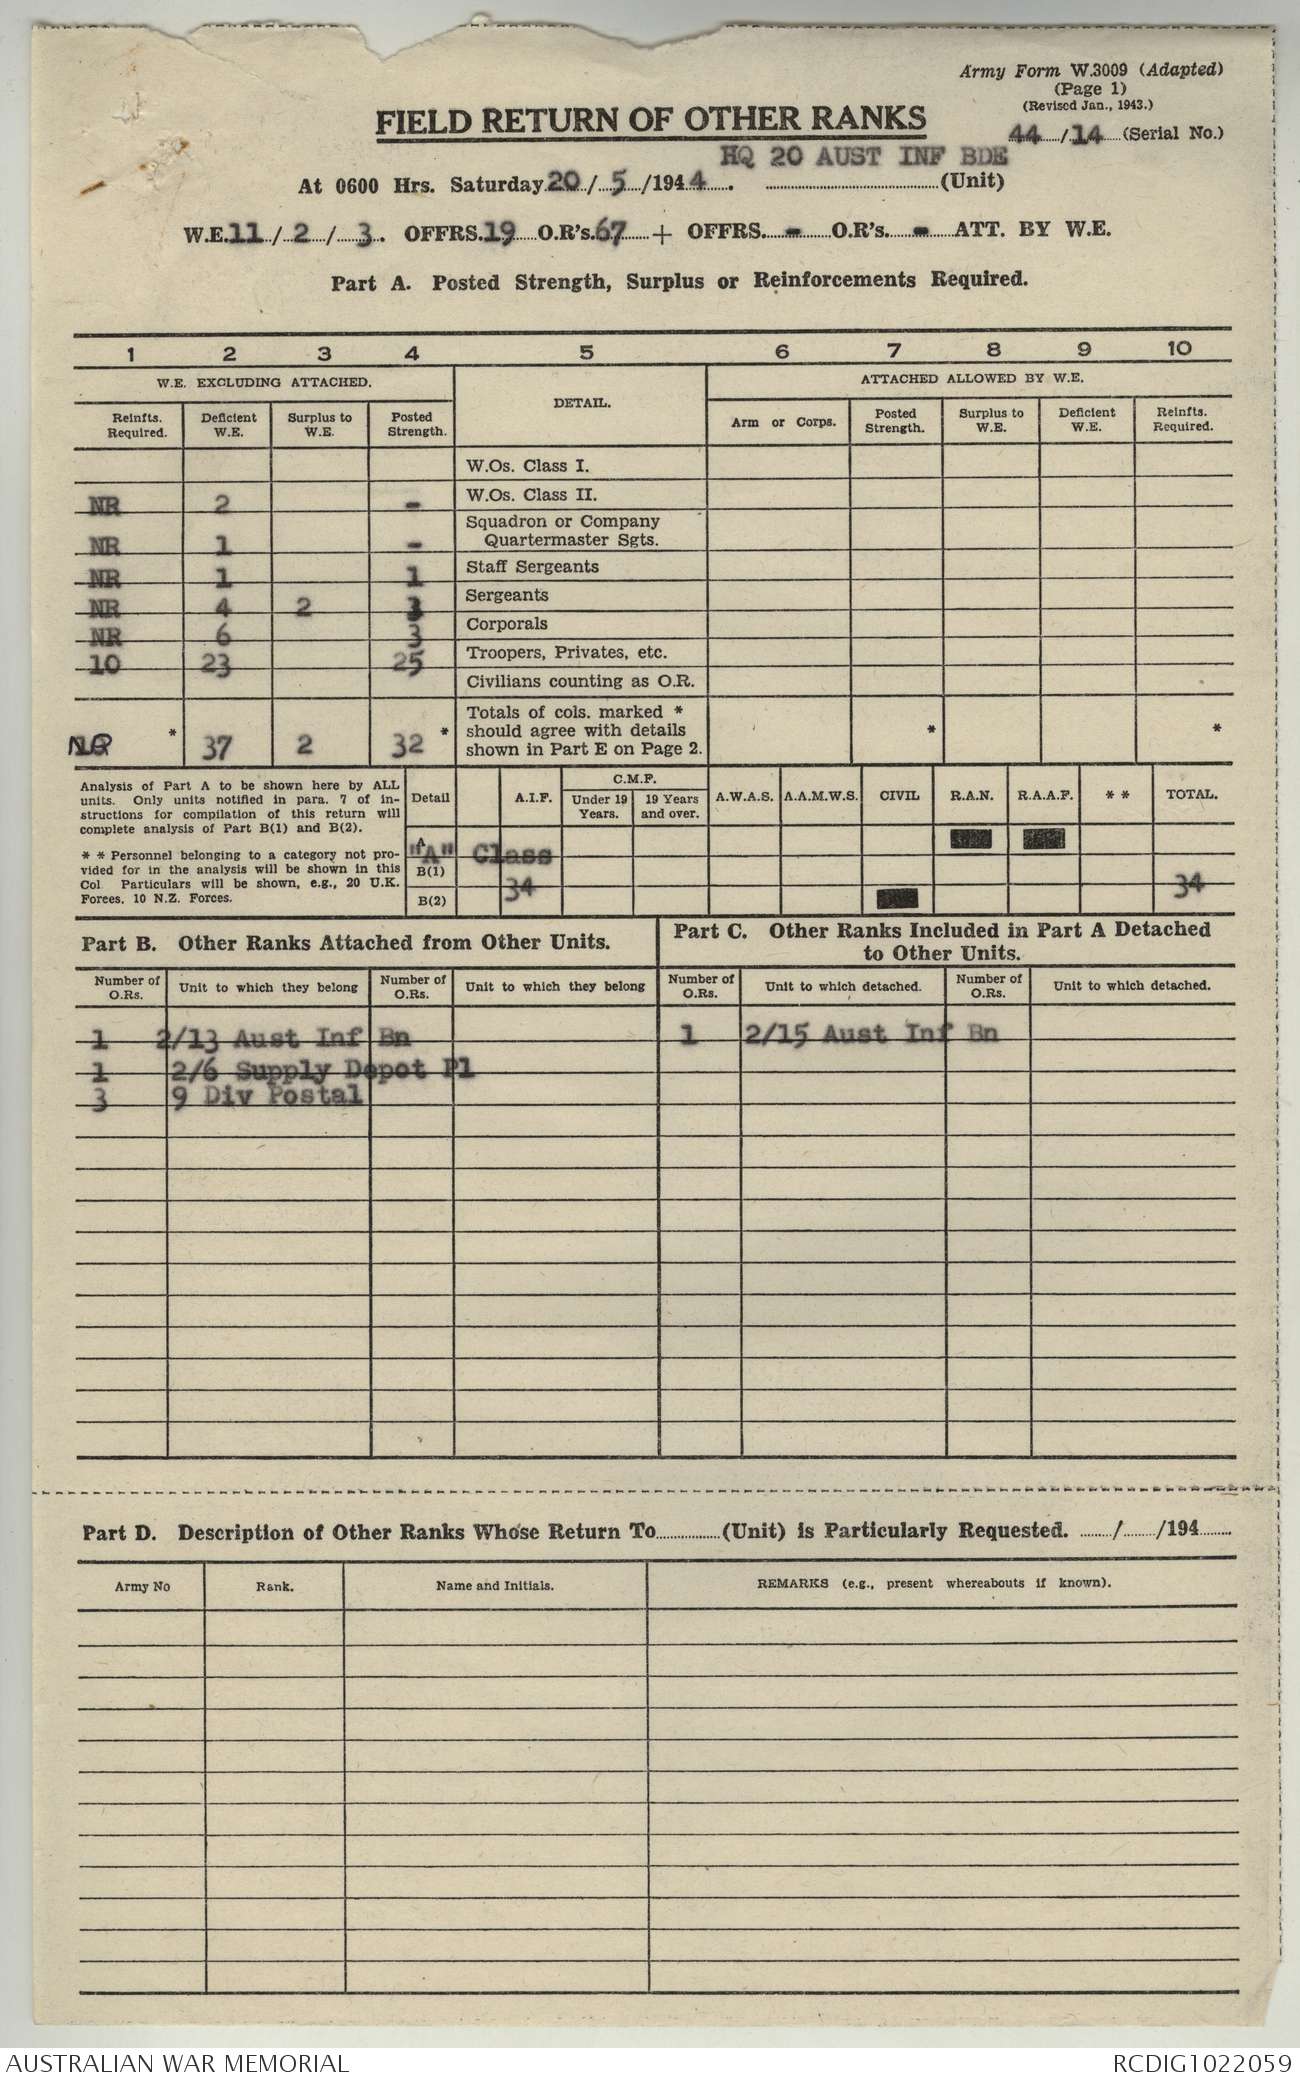 Army Form W.3009 (Adapted)
(Page 1)
(Revised Jan., 1943.)
FIELD RETURN OF OTHER RANKS
44/14 (Serial No.)
HQ 20 AUST INF BDE
At 0600 Hrs. Saturday 20/5/1944. (Unit)
W.E. 11/2/3. OFFRS. 19 O.R's. 67 + OFFRS. - O.R's. - ATT. BY W.E.
Part A. Posted Strength, Surplus or Reinforcements Required.
1 2 3 4 5 6 7 8 9 10
W.E. EXCLUDING ATTACHED. DETAIL. ATTACHED ALLOWED BY W.E.
Reinfts. Required. Deficient W.E. Surplus to W.E. Posted Strength. Arm or Corps. Posted Strength. Surplus to W.E. Deficient W.E. Reinfts. Required.
W.Os. Class I.
NR 2 - W.Os. Class II.
NR 1 - Squadron or Company Quartermaster Sgts.
NR 1 1 Staff Sergeants
NR 4 2 3 Sergeants
NR 6 3 Corporals
10 23 25 Troopers, Privates, etc.
Civilians counting as O.R.
* 37 2 32 * Totals of cols. marked * should agree with details shown in Part E on Page 2. * *
Analysis of Part A to be shown here by ALL
units. Only units notified in para. 7 of in-
structions for compilation of this return will
complete analysis of Part B(1) and B(2).
* * Personnel belonging to a category not pro-
vided for in the analysis will be shown in this
Col Particulars will be shown, e.g., 20 U.K.
Forces, 10 N.Z. Forces.
Detail A.I.F. C.M.F. Under 19 Years. 19 Years and over. A.W.A.S. A.A.M.W.S. CIVIL R.A.N. R.A.A.F. * * TOTAL.
A
"A" Class
B(1) 34 34
B(2)
Part B. Other Ranks Attached from Other Units.
Number of O.Rs. Unit to which they belong Number of O.Rs. Unit to which they belong
1 2/13 Aust Inf Bn
1 2/6 Supply Depot Pl
3 9 Div Postal
Part C. Other Ranks Included in Part A Detached
to Other Units.
Number of O.Rs. Unit to which detached. Number of O.Rs. Unit to which detached.
1 2/15 Aust Inf Bn
Part D. Description of Other Ranks Whose Return To (Unit) is Particularly Requested. / /194
Army No Rank. Name and Initials. REMARKS (e.g., present whereabouts if known).
AUSTRALIAN WAR MEMORIAL RCDIG1022059